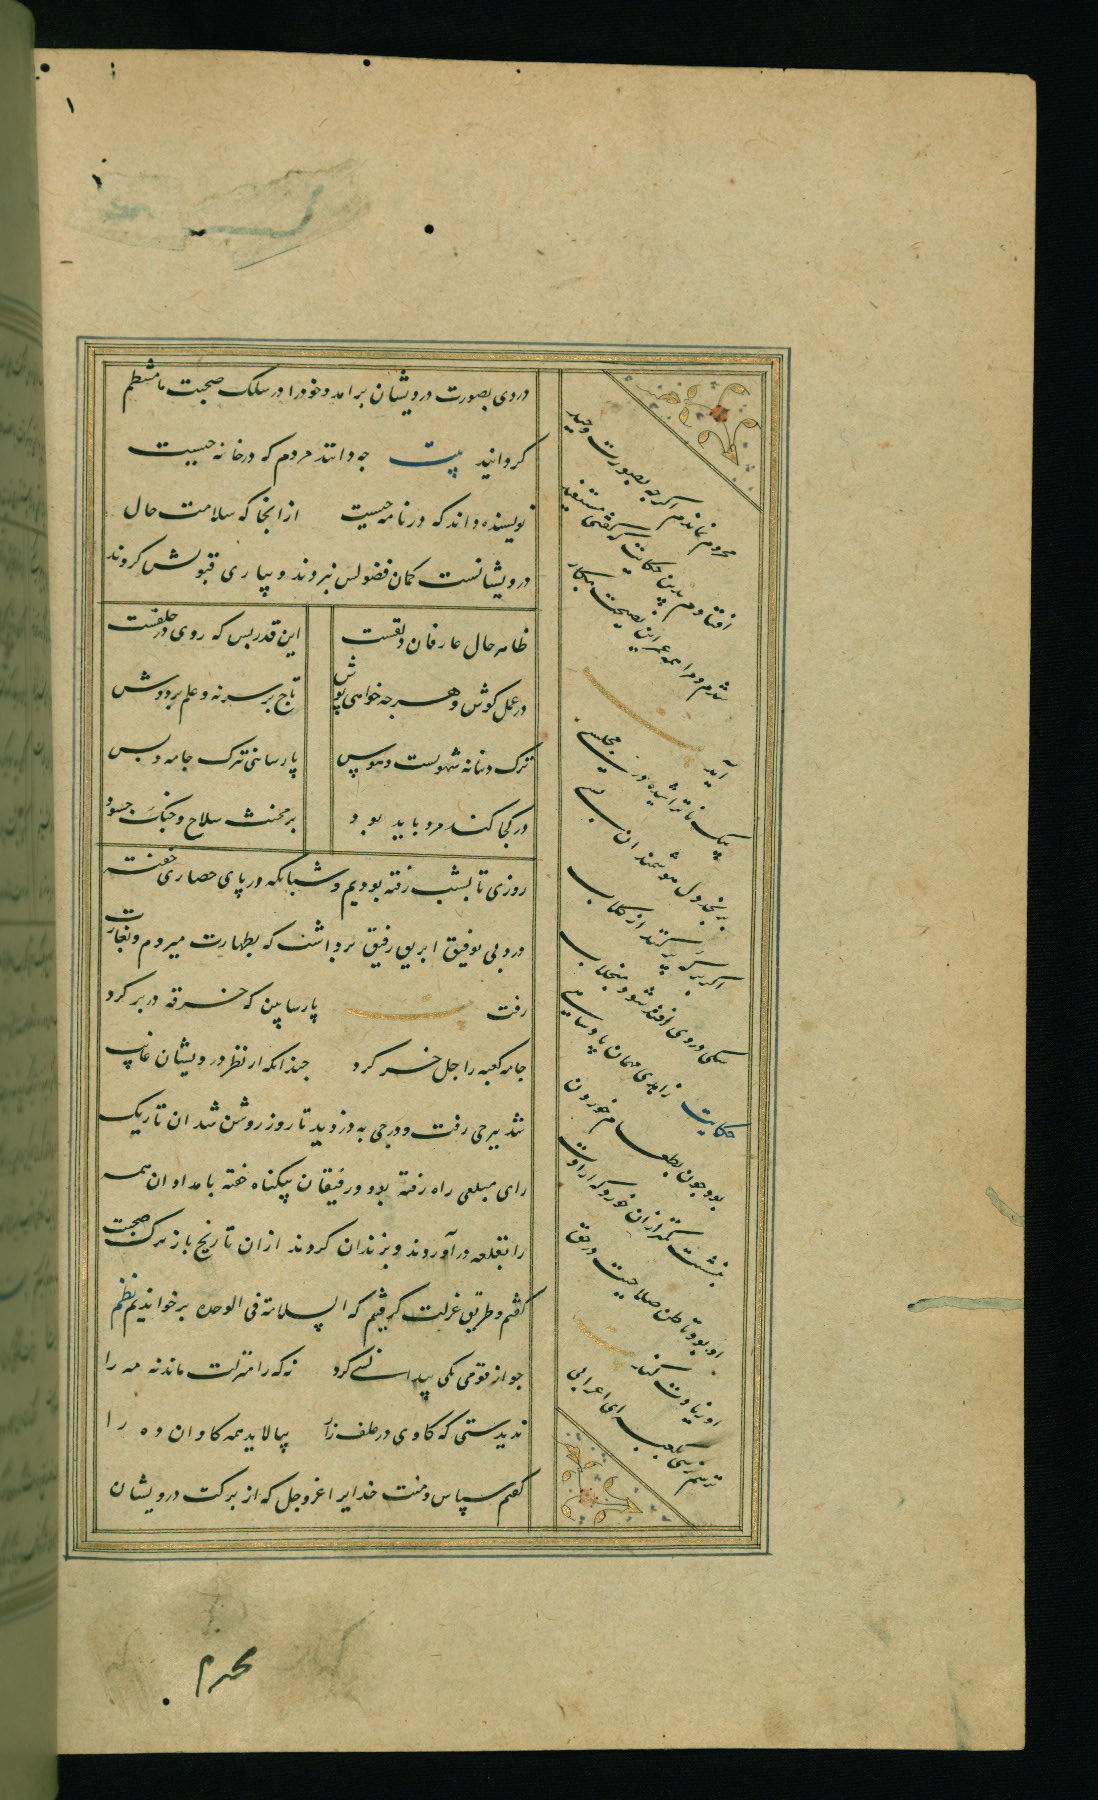 دزدی بصورت درویشان برامد و خود را در سلک صحبت ما منتظم
کردانید بیت چه دانند مردم که در خانه چیست
نویسنده داند که در نامه چیست از انجا که سلامت حال
درویشانست کمان فضولش نبردند و بیاری قبولش کردند
ظاهر حال عارفان دلقست این قدر بس که روی در خلقست
در عمل کوش و هر چه خواهی پوش تاج بر سر نه و علم بر دوش
ترک دنیا نه شهوتست و هوس پارسائی ترک جامه و بس
در کجا کند مرد باید بود بر مخنث سلاح جنک چه سود
روزی تا بشب رفته بودیم و شبانکه در پای حصاری خفته
دزد بی توفیق ابریق رفیق برداشت که بطهارت میروم و بغارت
رفت بیت پارسا بین که خرقه در بر کرد
جامه کعبه را جل خر کرد چندانکه از نظر درویشان غایب
شد ببرجی رفت و درجی بدزدید تا روز روشن شد ان تاریک
رای مبلغی راه رفته بود و رفیقان بیکناه خفته بامدادان همه
را بقلعه در آوردند و بزندان کردند ازان تاریخ باز ترک صحبت
کفتیم و طریق عزلت کرفتیم که السلامة فی الوحده بر خواندیم نظم
چو از قومی یکی بیدانشی کرد نه که را منزلت ماند نه مه را
ندیدستی که کاوی در علف زار بیالاید همه کاوان ده را
کفتم سپاس و منت خدایرا عز و جل که از برکت درویشان
محروم نماندم اکرچه بصورت وحید
افتادم بدین حکایت که کفتی مستفید
شدم و مرا همه عمر این نصیحت بکار
آید
بیک ناتراشیده در مجلسی
برنجد دل هوشمندان بسی
اکر برکه پر کنند از کلاب
سکی در وی افتد شود منجلاب
حکایت زاهدی مهمان پادشاهی
بود چون بطعام خوردن
بنشست کمتر ازان خورد که ارادت
او بود تا ظن صلاحیت در حق
او زیادت کند
ترسم نرسی بکعبه ای اعرابی
محرم